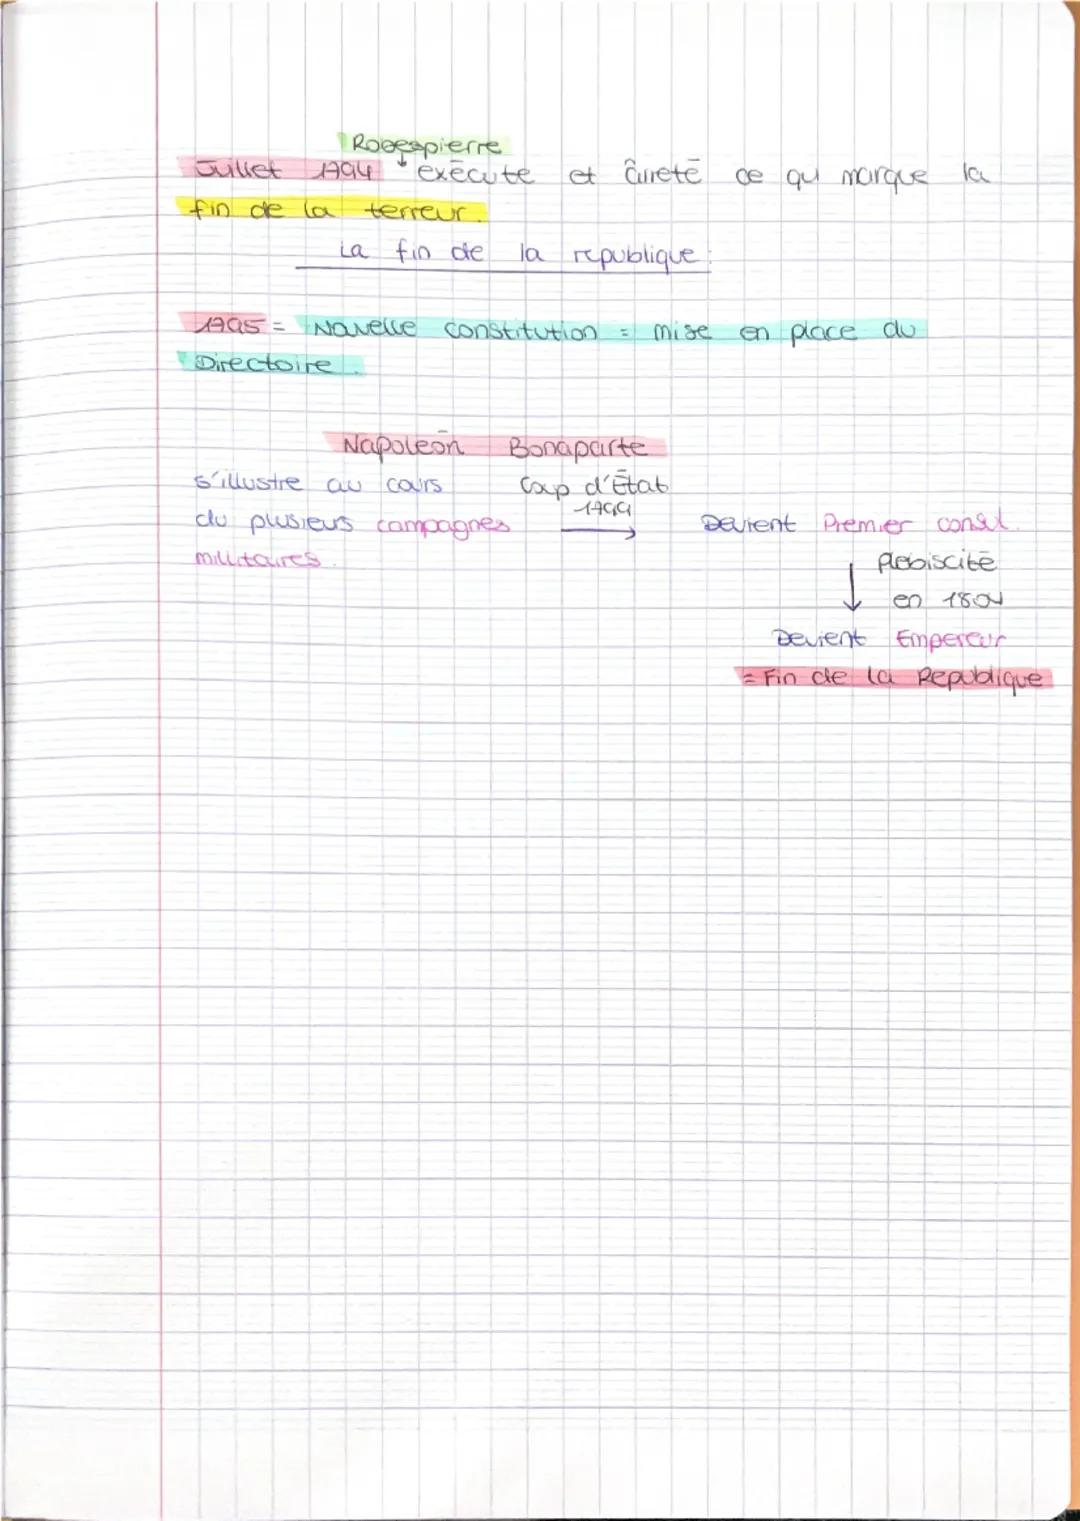 Robespierre
Juillet 1794 exécute et ârreté ce qui marque la
fin de la terreur.
La fin de la republique :
1795 = Nouvelle constitution = mise en place du
Directoire.
Napoléon Bonaparte
s'illustre au cours Coup d'État
du plusieurs campagnes 1799 Devient Premier consul.
millitaires. plebiscité
en 1804
Devient Empereur
= Fin de la Republique